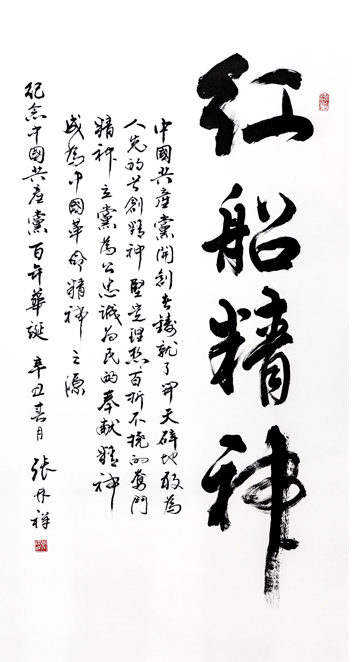 红船精神
中國共產黨開創者鑄就了開天辟地敢為
人先的首創精神堅定理想百折不撓的奮鬥
精神立黨為公忠誠為民的奉獻精神
成為中國革命精神之源
紀念中國共產黨百年華誕 辛丑春月 張丹祥